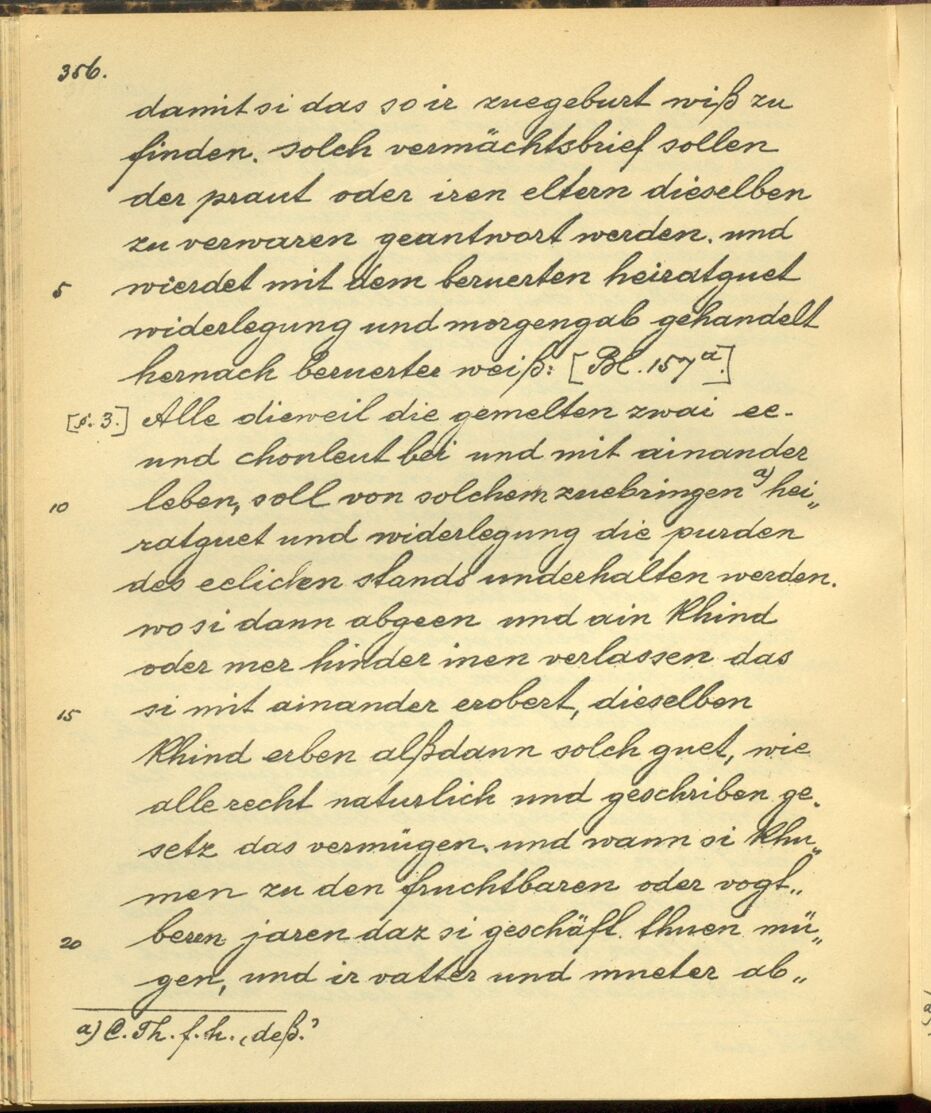 356.
damit si das so ir zuegeburt wiß zu
finden. solch vermächtsbrief sollen
der praut oder iren eltern dieselben
zu verwaren geantwort werden. und
5 wierdet mit dem beruerten heiratguet
widerlegung und morgengab gehandelt
hernach beruerter weiß: [Bl. 157a.]
[§. 3.] Alle dieweil die gemelten zwai ee-
und chonleut bei und mit ainander
10 leben, soll von solchem zuebringen a) hei„
ratguet und widerlegung die purden
des eelichen stands underhalten werden.
wo si dann abgeen und ain khind
oder mer hinder inen verlassen das
15 si mit ainander erobert, dieselben
khind erben alßdann solch guet, wie
alle recht naturlich und geschriben ge„
setz das vermügen. und wann si khu„
men zu den fruchtbaren oder vogt„
20 beren jaren daz si geschäft thuen mü„
gen, und ir vatter und mueter ab„
a) C. Th. f. h. ‚deß.‘